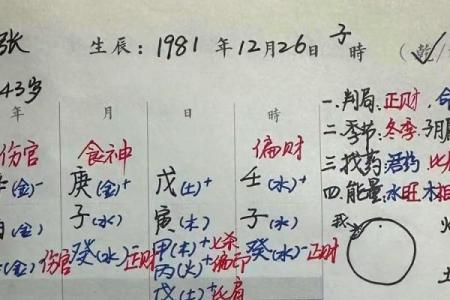 张 生辰：1981年12月26日子時（乾
43岁
年 月 日 時 一.判局.正财.
伤官 食神 偏财 二.季节.冬季.子月
庚(金)+ 戊(土)+ 壬(水)+ 三.找药.活药.比
(金) 子(水) 寅(木)+ 子(水) 四.能量.水旺木相
(金)伤官 癸(水)-正财 甲(木)+七杀 癸(水)-正财 我
丙(火)+偏印 火
戊(土)+比肩 土